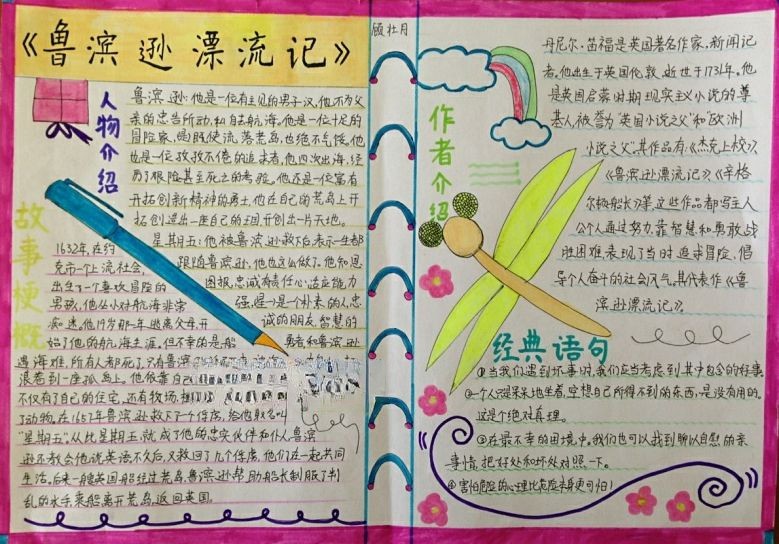 《鲁滨逊漂流记》
顾壮月
人物介绍
鲁滨逊:他是一位有主见的男子汉,他不为父
亲的忠告所动,私自去航海,他是一位十足的
冒险家,是既使流落荒岛,也绝不气馁。他
也是一位孜孜不倦的追求者,他四次出海,经
历了艰险甚至死亡的考验。他还是一位富有
开拓创新精神的勇士,他在自己的荒岛上开
拓创造出一座自己的王国,开创出一片天地。
星期五:他被鲁滨逊救下后表示一生都
跟随鲁滨逊,他也这么做了。他知恩
图报,忠诚有责任心,适应能力
强,是一个朴素的人,忠
诚的朋友,智慧的
勇者和鲁滨逊
故事梗概
1632年,在约
克市一个上流社会,
出生了一个喜欢冒险的
男孩,他从小对航海非常
知迷,他19岁那一年,逃离父母,开
始了他的航海生涯,但不幸的是,船
遇海难,所有人都死了,只有鲁滨
浪卷到一座孤岛上。他依靠自
不仅有了自己的住宅,还有牧场,
了动物。在1657年鲁滨逊救下了一个俘虏,给他取名叫
"星期五",从比星期五就成了他的忠实伙伴和仆人,鲁滨
逊还教会他说英语不久后,又救回了几个俘虏,他们在一起共同
生活。后来一艘英国船经过荒岛,鲁滨逊帮助船长制服了判
乱的水手,乘船离开荒岛,返回英国。
作者介绍
丹尼尔·笛福是英国著名作家,新闻记
者。他出生于英国伦敦,逝世于1731年。他
是英国启蒙时期现实主义小说的尊
基人,被誉为"英国小说之父"和"欧洲
小说之父"。其作品有:《杰克上校》
《鲁滨逊漂流记》《辛格
尔顿船长》等,这些作品都写主人
公个人通过努力,靠智慧和勇敢战
胜困难表现了当时追求冒险,倡
导个人奋斗的社会风气。其代表作《鲁
滨逊漂流记》。
经典语句
①当我们遇到坏事时,我们应当考虑到其中包含的好事。
②一个人只是呆呆地坐着,空想自己所得不到的东西,是没有用的。
这是个绝对真理。
③在最不幸的困境中,我们也可以找到聊以自慰的亲
事情,把好处和坏处对照一下。
④害怕危险的心理比危险本身更可怕!